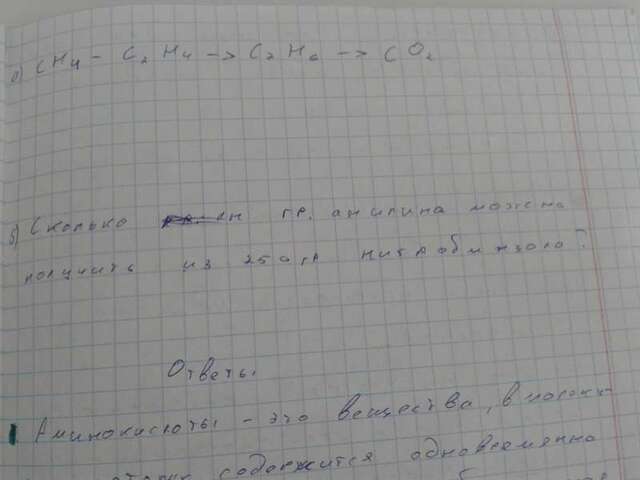 а) CH4 - C2H4 -> C2H6 -> CO2
б) Сколько гр. анилина можно
получить из 250 гр нитробензола?
Ответы
1 Аминокислоты - это вещества, в
содержится одновременно